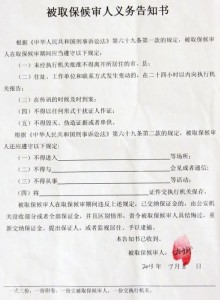 被取保候审人义务告知书
根据《中华人民共和国刑事诉讼法》第六十九条第一款的规定，被取保候审
人在取保候审期间应当遵守以下规定：
（一）未经执行机关批准不得离开所居住的市、县；
（二）住址、工作单位和联系方式发生变动的，在二十四小时以内向执行机
关报告；
（三）在传讯的时候及时到案；
（四）不得以任何形式干扰证人作证；
（五）不得毁灭、伪造证据或者串供。
根据《中华人民共和国刑事诉讼法》第六十九条第二款的规定，被取保候审
人还应遵守以下规定：
（一）不得进入 等场所；
（二）不得与 会见或者通信；
（三）不得从事 等活动；
（四）将 证件交执行机关保存。
被取保候审人在取保候审期间违反上述规定，已交纳保证金的，由公安机
关没收部分或者全部保证金，并且区别情形，责令被取保候审人具结悔过，重
新交纳保证金、提出保证人，或者监视居住、予以逮捕。
本告知书已收到。
被取保候审人：
年 月 日
一式三份，一份附卷，一份交被取保候审人，一份交执行机关。